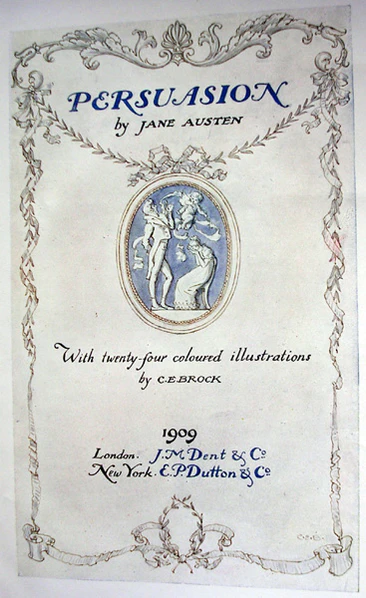 PERSUASION
by JANE AUSTEN
With twenty-four coloured illustrations
by C.E.BROCK
1909
London. J.M. Dent & Co
New York. E.P. Dutton & Co
C.E.B.